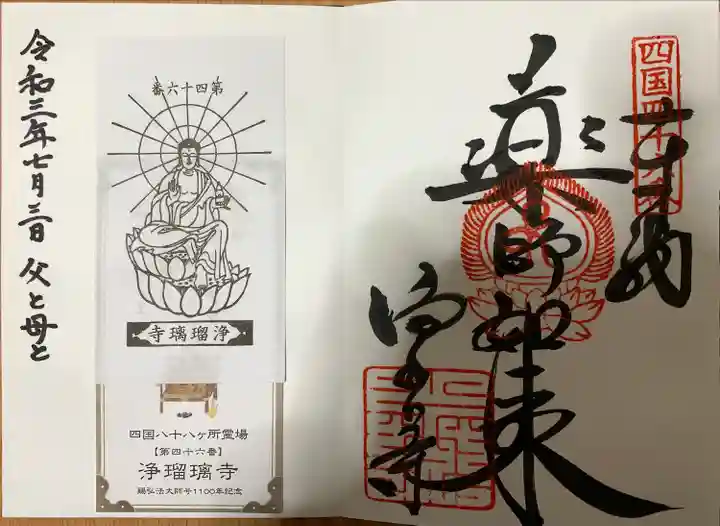 四国四十六番
薬師如来
第四十六番
浄瑠璃寺
四国八十八ヶ所霊場
【第四十六番】
浄瑠璃寺
賜弘法大師号1100年記念
令和三年七月三日 父と母と